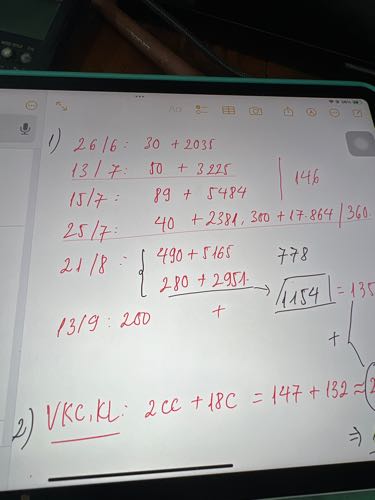 1) 26/6: 30 + 2035
13/7: 50 + 3225
146
15/7: 89 + 5484
25/7: 40 + 2381, 300 + 17.864 / 360.
21/8: { 490 + 5165 778
280 + 2951. → 1154 = 135
13/9: 200 +
+
2) VKC, KL: 2CC + 18C = 147 + 132 ≈ 2
⇒